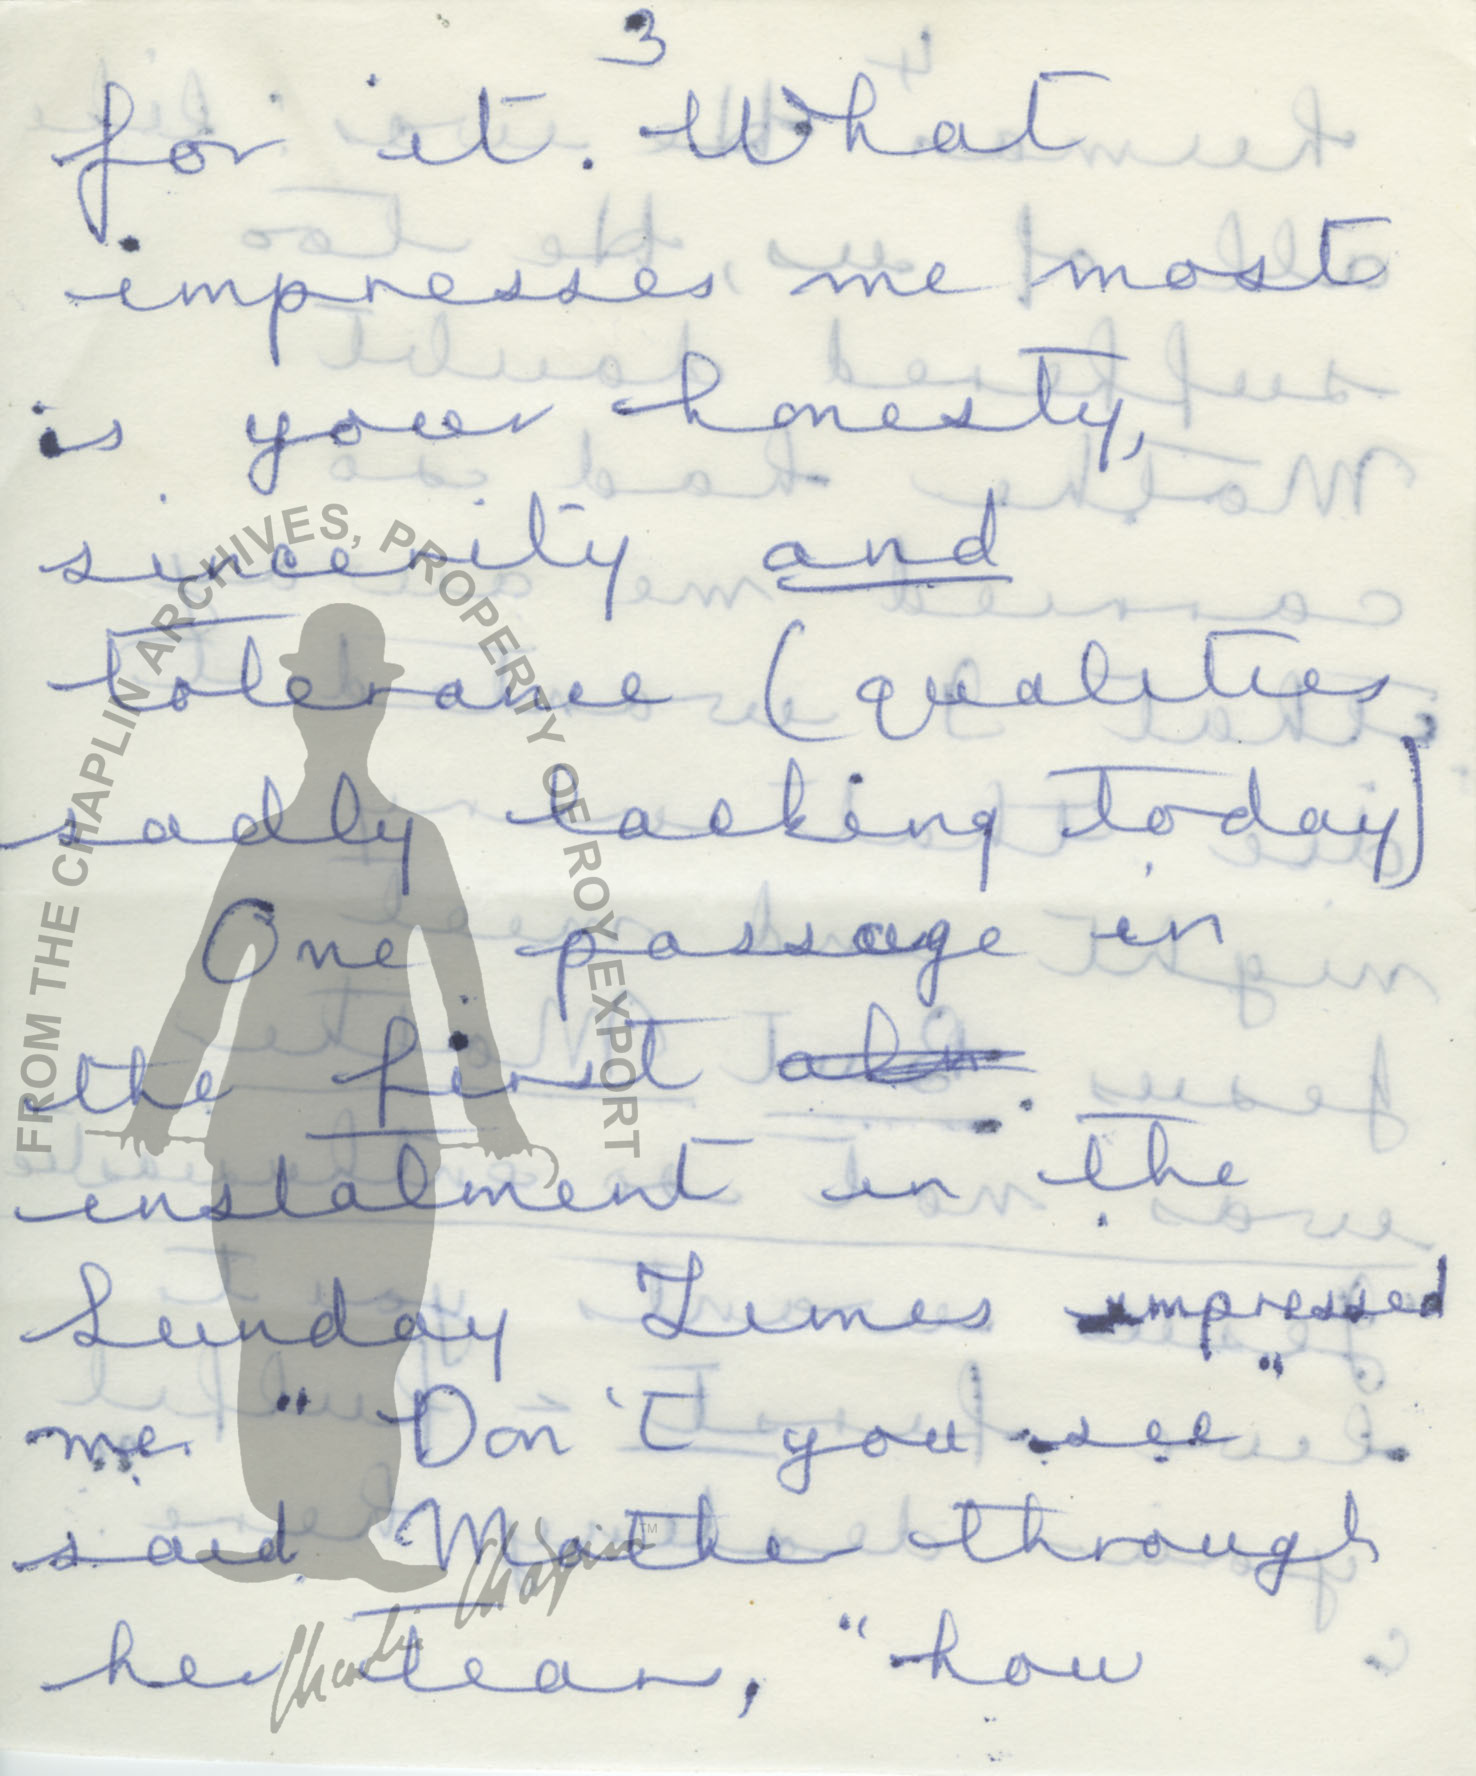 3
for it. What
impresses me most
is your honesty,
sincerity and
tolerance (qualities
sadly lacking today)
One passage in
the first
instalment in the
Sunday Times impressed
me. "Don't you see"
said Mother through
her tears, "how
FROM THE CHAPLIN ARCHIVES, PROPERTY OF ROY EXPORT
Charlie Chaplin TM